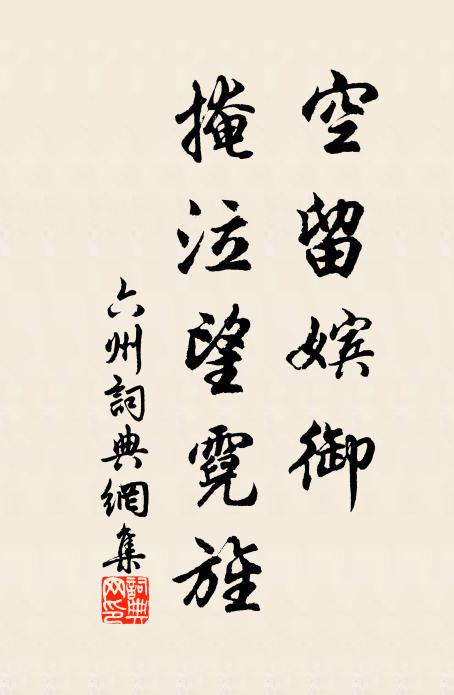 空留嬪御
掩泣望霓旌
六州詞典網集
詞典网印